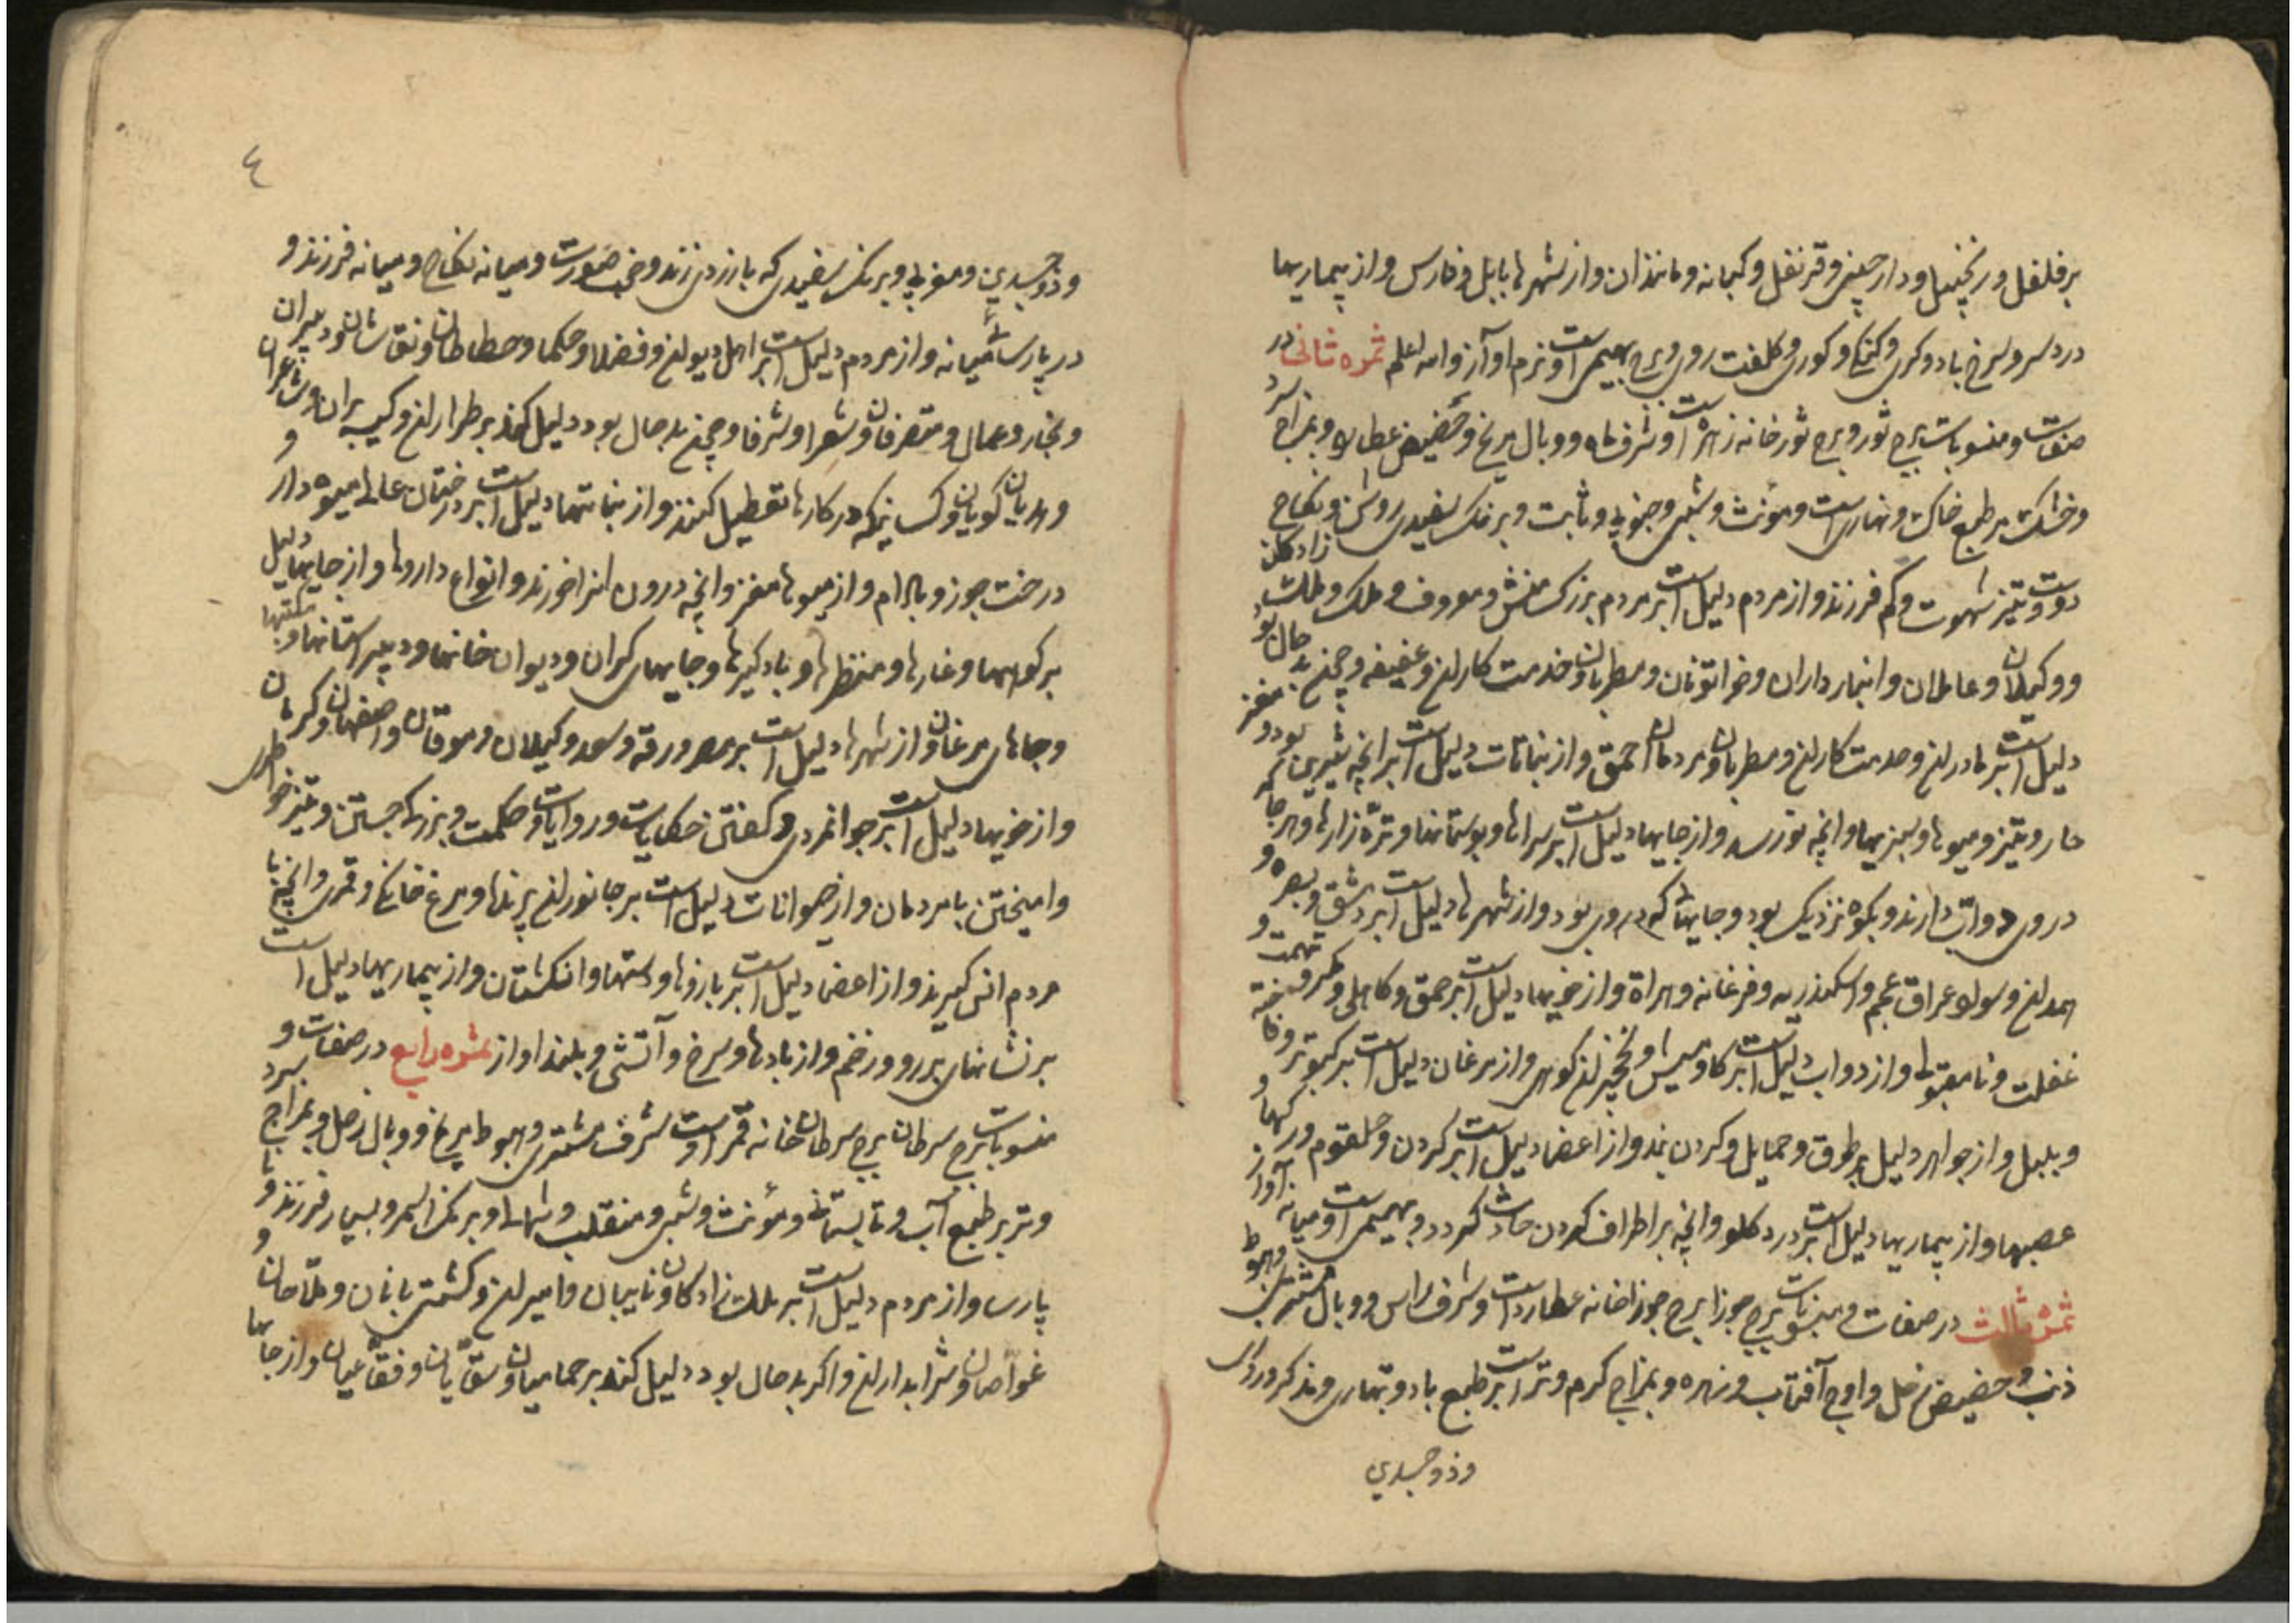 بر فلفل و زنجبیل و دارچینی و قرنفل و کبابه و مانندان و از شهرها بابل و فارس و از بیماریها
درد سر و سرخ باد و کری و کنکی و کوری و کلفت روی و برج بهیمی است و نرم آواز والله اعلم ثمره ثانی در
صفات و منسوبات برج ثور و برج ثور خانه زهره است و شرف ماه و وبال مریخ و حضیض عطارد و بمزاج سرد
و خشک بر طبع خاک و بهاری است و مؤنث و شبی و جنوبی و ثابت و بر رنگ سفیدی روشن و نکاح
دوست و تیز شهوت و کم فرزند و از مردم دلیل است بر مردم بزرک منش و معروف و ملک و ملک زادکان
و وکیلان و عاملان و انبارداران و خواتونان و مطربان و خدمت کاران و عفیفه و چون بد حال بود
دلیل است بر مادران و خدمت کاران و مطربان و مردمان احمق و از نباتات دلیل است بر انچه شیرین بود و مغز
دار و تیز و میوها و سبزیها و انچه نو رسد و از جایها دلیل است بر سراها و بوستانها و تره زارها و هر جا که
در وی دواب دارند و بکوه نزدیک بود و جایها که در وی بود و از شهرها دلیل است بر دمشق و بصره و
همدان و عراق عجم و اسکندریه و فرغانه و هراة و از خویها دلیل است بر حمق و کاهلی و مکر و تهمت و
غفلت و از دواب دلیل است بر کاومیش و نخجیران کوهی و از مرغان دلیل است بر کبوتر و فاخته
و بلبل و از جواهر دلیل بر طوق و حمایل و کردن بند و از اعضا دلیل است بر کردن و حلقوم و رکها و
عصبها و از بیماریها دلیل است بر درد کلو و انچه بر اطراف کردن حادث کردد و بهیمی است و میانه آواز
ثمره ثالث در صفات و منسوبات برج جوزا برج جوزا خانه عطارد است و شرف راس و وبال مشتری و هبوط
ذنب و حضیض زحل و اوج آفتاب و زهره و بمزاج کرم و تر است بر طبع باد و بهاری و مذکر و روزی
و ذو جسدین
٤
و ذو جسدین و مغربی و بر رنگ سفیدی که با زردی زند و خوب صورت و میانه نکاح و میانه فرزند و
در پارسائی میانه و از مردم دلیل است بر اهل دیوان و فضلا و حکما و خطاطان و نقاشان و دبیران
و تجار و عمال و متصرفان و شعرا و شرفا و چون بد حال بود دلیل کند بر طراران و کیسه بران و شاعران و
و هذیان کویان و کسانیکه در کارها تعطیل کنند و از نباتها دلیل است بر درختان عالی میوه دار
درخت جوز و بادام و از میوها مغز و انچه درون انرا خورند و انواع داروها و از جایها دلیل
بر کوهها و غارها و منظرها و بادکیرها و جایهای کران و دیوان خانها و دبیرستانها و مکتبها
و جاهای مرغان و از شهرها دلیل است بر مصر و رقه و سغد و کیلان و موقان و اصفهان و کرمان
و از خویها دلیل است بر جوانمردی و کفتن حکایات و روایات و حکمت و بزرکی جستن و تیز خواطری
و امیختن با مردمان و از حیوانات دلیل است بر جانوران پرنده و مرغ خانکی و قمری و انچه با
مردم انس کیرند و از اعضا دلیل است بر بازوها و دستها و انکشتان و از بیماریها دلیل است
بر نشانهای بر رو و زخم و از بادها و سرخ و آتشی و بلند اواز ثمره رابع در صفات و
منسوبات برج سرطان برج سرطان خانه قمر است و شرف مشتری و هبوط مریخ و وبال زحل و بمزاج سرد
و تر بر طبع آب و تابستانی و مؤنث و شبی و منقلب و شمالی و بر رنگ اسمر و بسیار فرزند و نا
پارسا و از مردم دلیل است بر ملک زادکان و نایبان و امیران و کشتی بانان و ملاحان و
غواصان و شرابداران و اکر بد حال بود دلیل کند بر حمامیان و سقایان و فقاعیان و از جایها